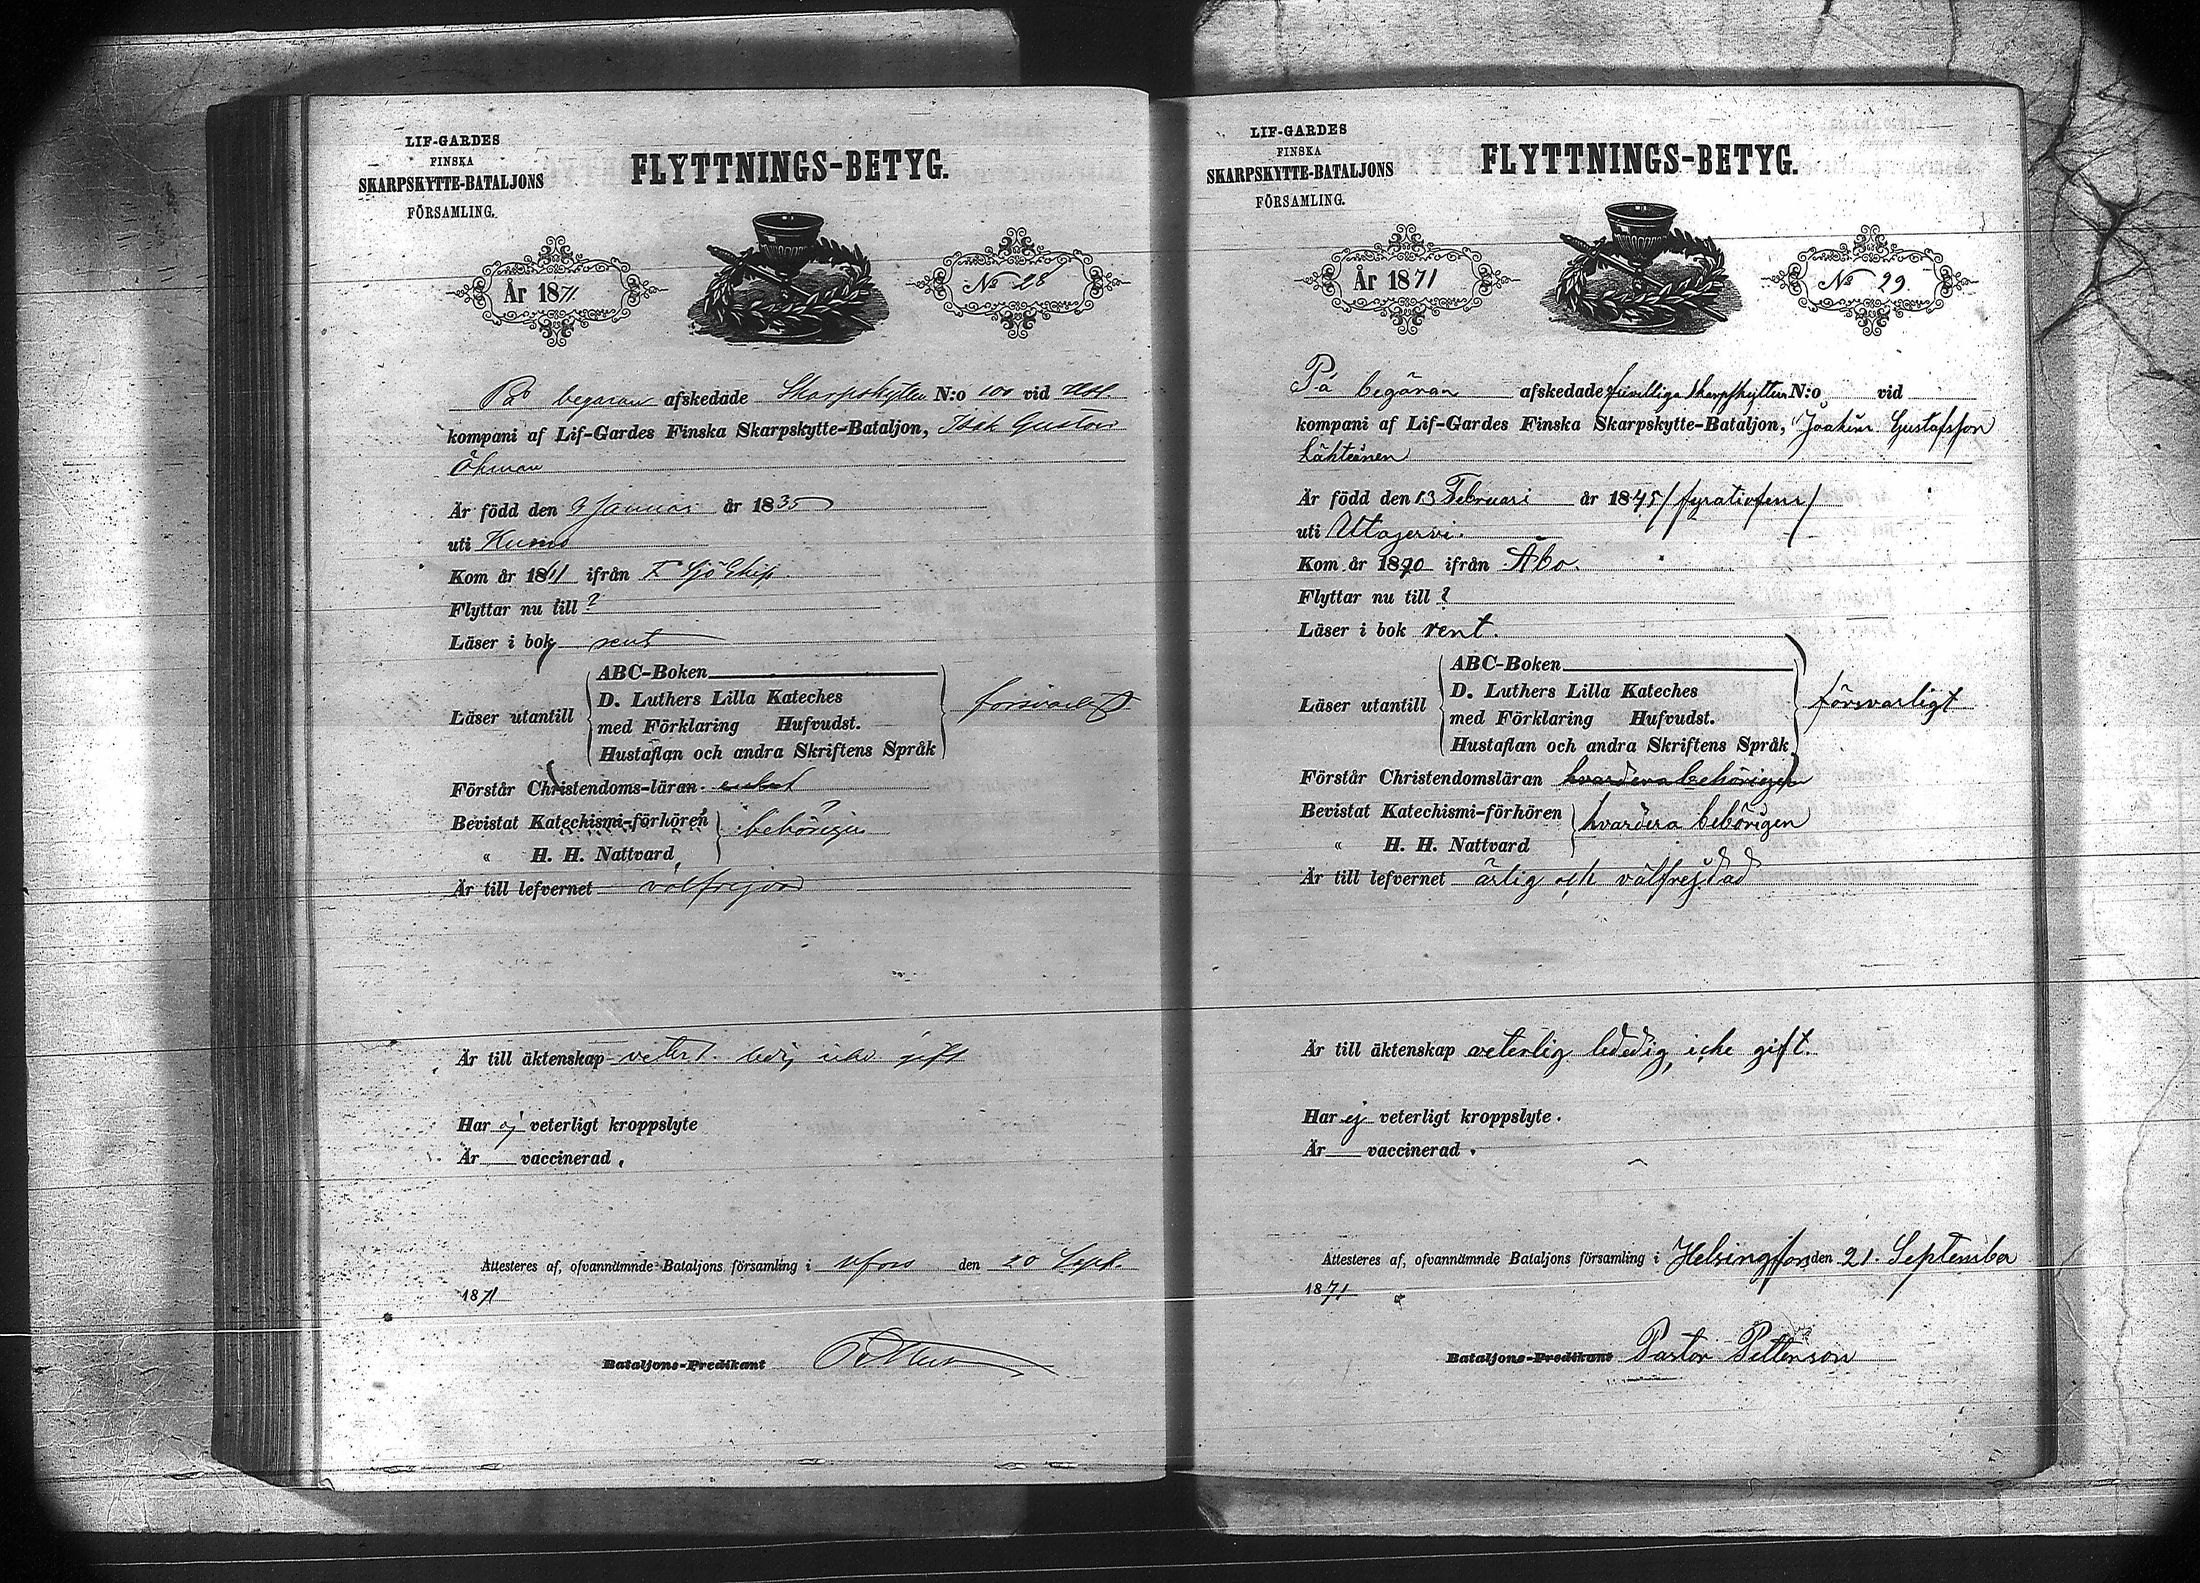 LIF-GARDES
FINSKA
SKARPSKYTTE-BATALJONS
FÖRSAMLING.
FLYTTNINGS-BETYG.
År 1871.
No 28
På begäran afskedade Skarpskytten N:o 100 vid
kompani af Lif-Gardes Finska Skarpskytte-Bataljon, Gustav
Öhman
Är född den 9 Januari år 1835
uti Kumo
Kom år 1861 ifrån
Flyttar nu till ?
Läser i bok rent
Läser utantill
ABC-Boken
D. Luthers Lilla Kateches
med Förklaring Hufvudst.
Hustaflan och andra Skriftens Språk
försvarligt
Förstår Christendoms-läran enkelt
Bevistat Katechismi-förhören
„ H. H. Nattvard
behörigen
Är till lefvernet välfrejdad
Är till äktenskap veterl. ledig, icke gift
Har ej veterligt kroppslyte
Är vaccinerad.
Attesteras af, ofvannämnde Bataljons församling i Hfors den 20 Sept.
1871
Bataljons-Predikant
LIF-GARDES
FINSKA
SKARPSKYTTE-BATALJONS
FÖRSAMLING.
FLYTTNINGS-BETYG.
År 1871
No 29.
På begäran afskedade frivilliga skarpskytten N:o vid
kompani af Lif-Gardes Finska Skarpskytte-Bataljon, Joakim Gustafsson
Lähteinen
Är född den 13 Februari år 1845 /fyratiofem/
uti Utajervi.
Kom år 1870 ifrån Åbo.
Flyttar nu till ?
Läser i bok rent.
Läser utantill
ABC-Boken
D. Luthers Lilla Kateches
med Förklaring Hufvudst.
Hustaflan och andra Skriftens Språk
försvarligt
Förstår Christendomsläran hvardera behörigen
Bevistat Katechismi-förhören
„ H. H. Nattvard
hvardera behörigen
Är till lefvernet ärlig och välfrejdad
Är till äktenskap veterlig ledig, icke gift.
Har ej veterligt kroppslyte.
Är vaccinerad.
Attesteres af, ofvannämnde Bataljons församling i Helsingfors den 21. September
1871
Bataljons-Predikant Pastor Petterson